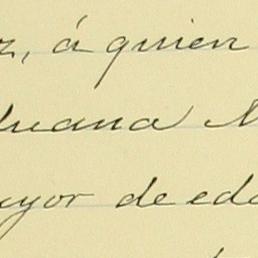 z, á quien
Juana M
ayor de eda